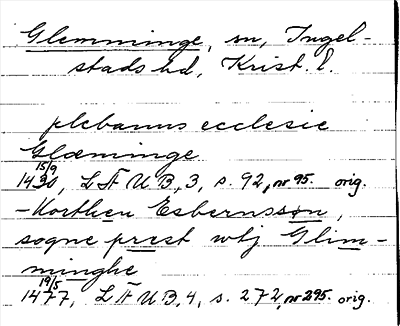 Glemminge, sn, Ingel-
stads hd, Krist. l.
plebanus ecclesie
Glæminge
15/9 1430, LÄUB, 3, s. 92, nr 95. orig.
- Korthen Esbernsson,
sogne prest wtj Glim-
minghe
19/5 1477, LÄUB, 4, s. 272, nr 295. orig.